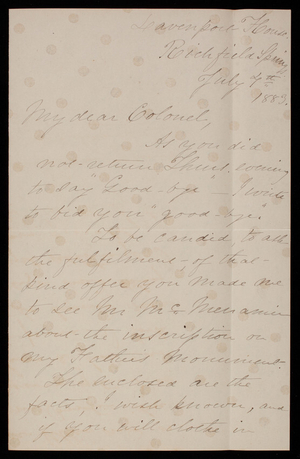 Davenport House
Richfield Springs
July 7th
1883.
My dear Colonel,
As you did
not return Thurs. evening
to say "Good-bye" — I write
to bid you "good-bye."
To be candid to ask
the fulfilment of that
kind offer you made me
to see Mr. McMenamin
about the inscription on
my Father's Monument.
The enclosed are the
facts, I wish known, and
if you will clothe in